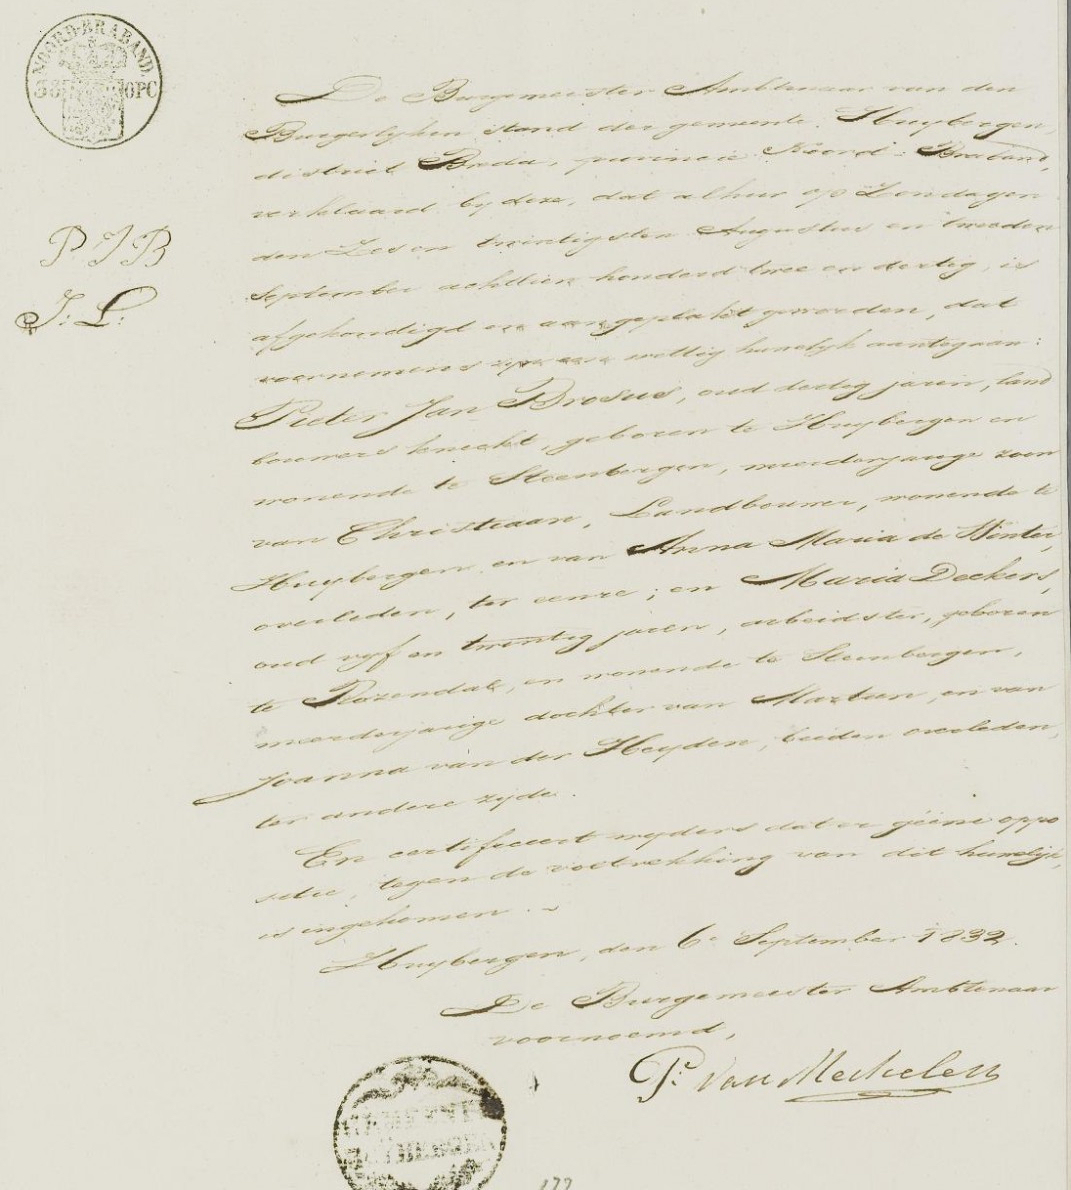 NOORD-BRABAND.
38 OPC
P J B
J: L:
De Burgemeester Ambtenaar van den
Burgerlyken stand der gemeente Huybergen,
district Breda, provincie Noord-Braband,
verklaard by deze, dat alhier op Zondagen
den Zes en twintigsten Augustus en tweeden
September achttien honderd twee en dertig, is
afgekondigd en aangeplakt geworden, dat
voornemens zyn een wettig huwelyk aantegaan:
Pieter Jan Brosus, oud dertig jaren, land
bouwers knecht, geboren te Huybergen en
wonende te Steenbergen, meerderjarige zoon
van Christiaan, Landbouwer, wonende te
Huybergen en van Anna Maria de Winter,
overleden, ter eenre; en Maria Deckers,
oud vyf en twintig jaren, arbeidster, geboren
te Rozendaal, en wonende te Steenbergen,
meerderjarige dochter van Martien, en van
Joanna van der Heyden, beiden overleden,
ter andere zyde.
En certificeert wyders dat er geene oppo
sitie, tegen de voltrekking van dit huwelyk,
is ingekomen.
Huybergen, den 6e September 1832.
De Burgemeester Ambtenaar
voornoemd,
P: van Mechelen
177